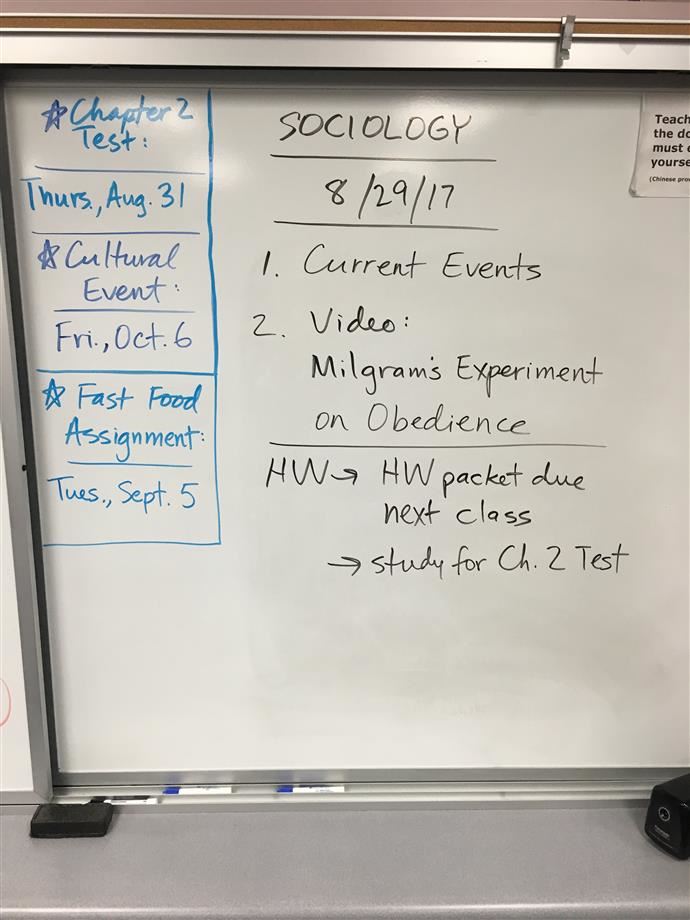 ☆ Chapter 2
Test:
Thurs., Aug. 31
☆ Cultural
Event:
Fri., Oct. 6
☆ Fast Food
Assignment:
Tues., Sept. 5
SOCIOLOGY
8/29/17
1. Current Events
2. Video:
Milgram's Experiment
on Obedience
HW → HW packet due
next class
→ study for Ch. 2 Test
Teach
the do
must
yourse
(Chinese prov